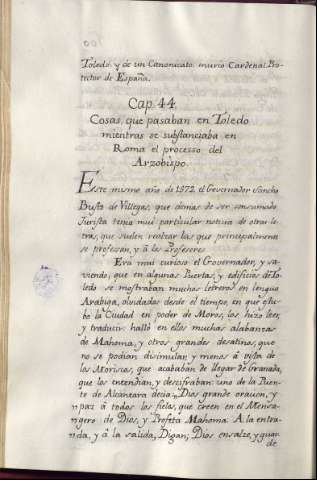 Toledo, y de un Canonicato: murio Cardenal Pro-
tector de España.
Cap. 44.
Cosas, que pasaban en Toledo
mientras se substanciaba en
Roma el processo del
Arzobispo.
Este mismo año de 1572. el Governador Sancho
Busto de Villegas, que demas de ser consumado
Jurista tenia mui particular noticia de otras le-
tras, que suelen realzar las que principalmente
se professan, y á los Professores
Era mui curioso el Governador, y sa-
viendo, que en algunas Puertas, y edificios de To-
ledo se mostraban muchos letreros en lengua
Arabiga, olvidados desde el tiempo, en que estu-
bo la Ciudad en poder de Moros, los hizo leer,
y traducir: halló en ellos muchas alabanzas
de Mahoma, y otros grandes desatinos, que
no se podian disimular, y menos á vista de
los Moriscos, que acababan de llegar de Granada,
que los entendian, y descifraban: uno de la Puen-
te de Alcantara decia: Dios grande oracion, y
paz á todos los fieles, que creen en el Mensa-
gero de Dios, y Profeta Mahoma. A la entra-
da, y á la salida, Digan, Dios ensalze, y guar-
de